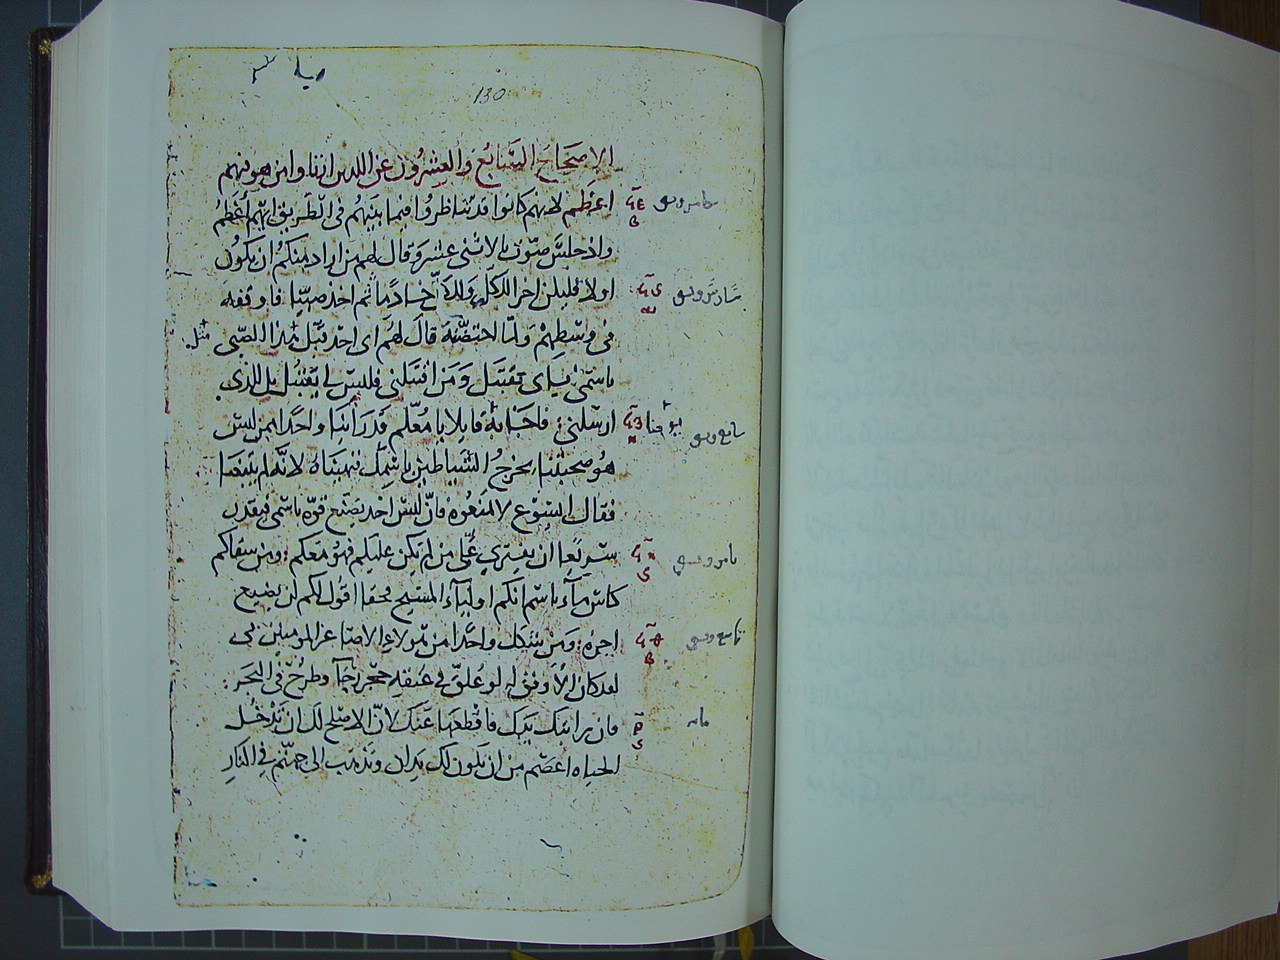 130
الاصحاح السابع والعشرون عن اللذين ابننا واىن هو منهم
اعظم لانهم كانوا قد تناظروا فيما بينهم في الطريق ايهم اعظم
واذ جلس صوت بالاثنى عشر وقال لهم من اراد منكم ان يكون
اولا فليكن اخر الكل وللكل خادما ثم اخذ صبيا فاوقفه
في وسطهم ولما احتضنه قال لهم اي احد قبل مثل هذا الصبي
باسمي فاياي تقبل ومن اقتبلني فليس لي يقتبل بل للذي
ارسلني فاجابه قايلا يا معلم قد راينا واحدا ممن ليس
هو صحبتنا يخرج الشياطين باسمك فنهيناه لانه لم يتبعنا
فقال ايسوع لا تمنعوه فان ليس احد يصنع قوه باسمي فيقدر
سريعا ان يفتري علي من لم يكن عليكم فهو معكم ومن سقاكم
كاس ماء باسم انكم اولياء المسيح فحقا اقول لكم لن يضيع
اجره ومن شكك واحدا من هولاء الاصاغر المومنين بي
لقد كان الاوفق له لو علق في عنقه حجر رحا وطرح في البحر
فان رابتك يدك فاقطعها عنك لان الاصلح لك ان تدخل
الحياه اعصم من ان يكون لك يدان وتذهب الى جهنم في النار
سادس وتسعون
يوحنا
مايه